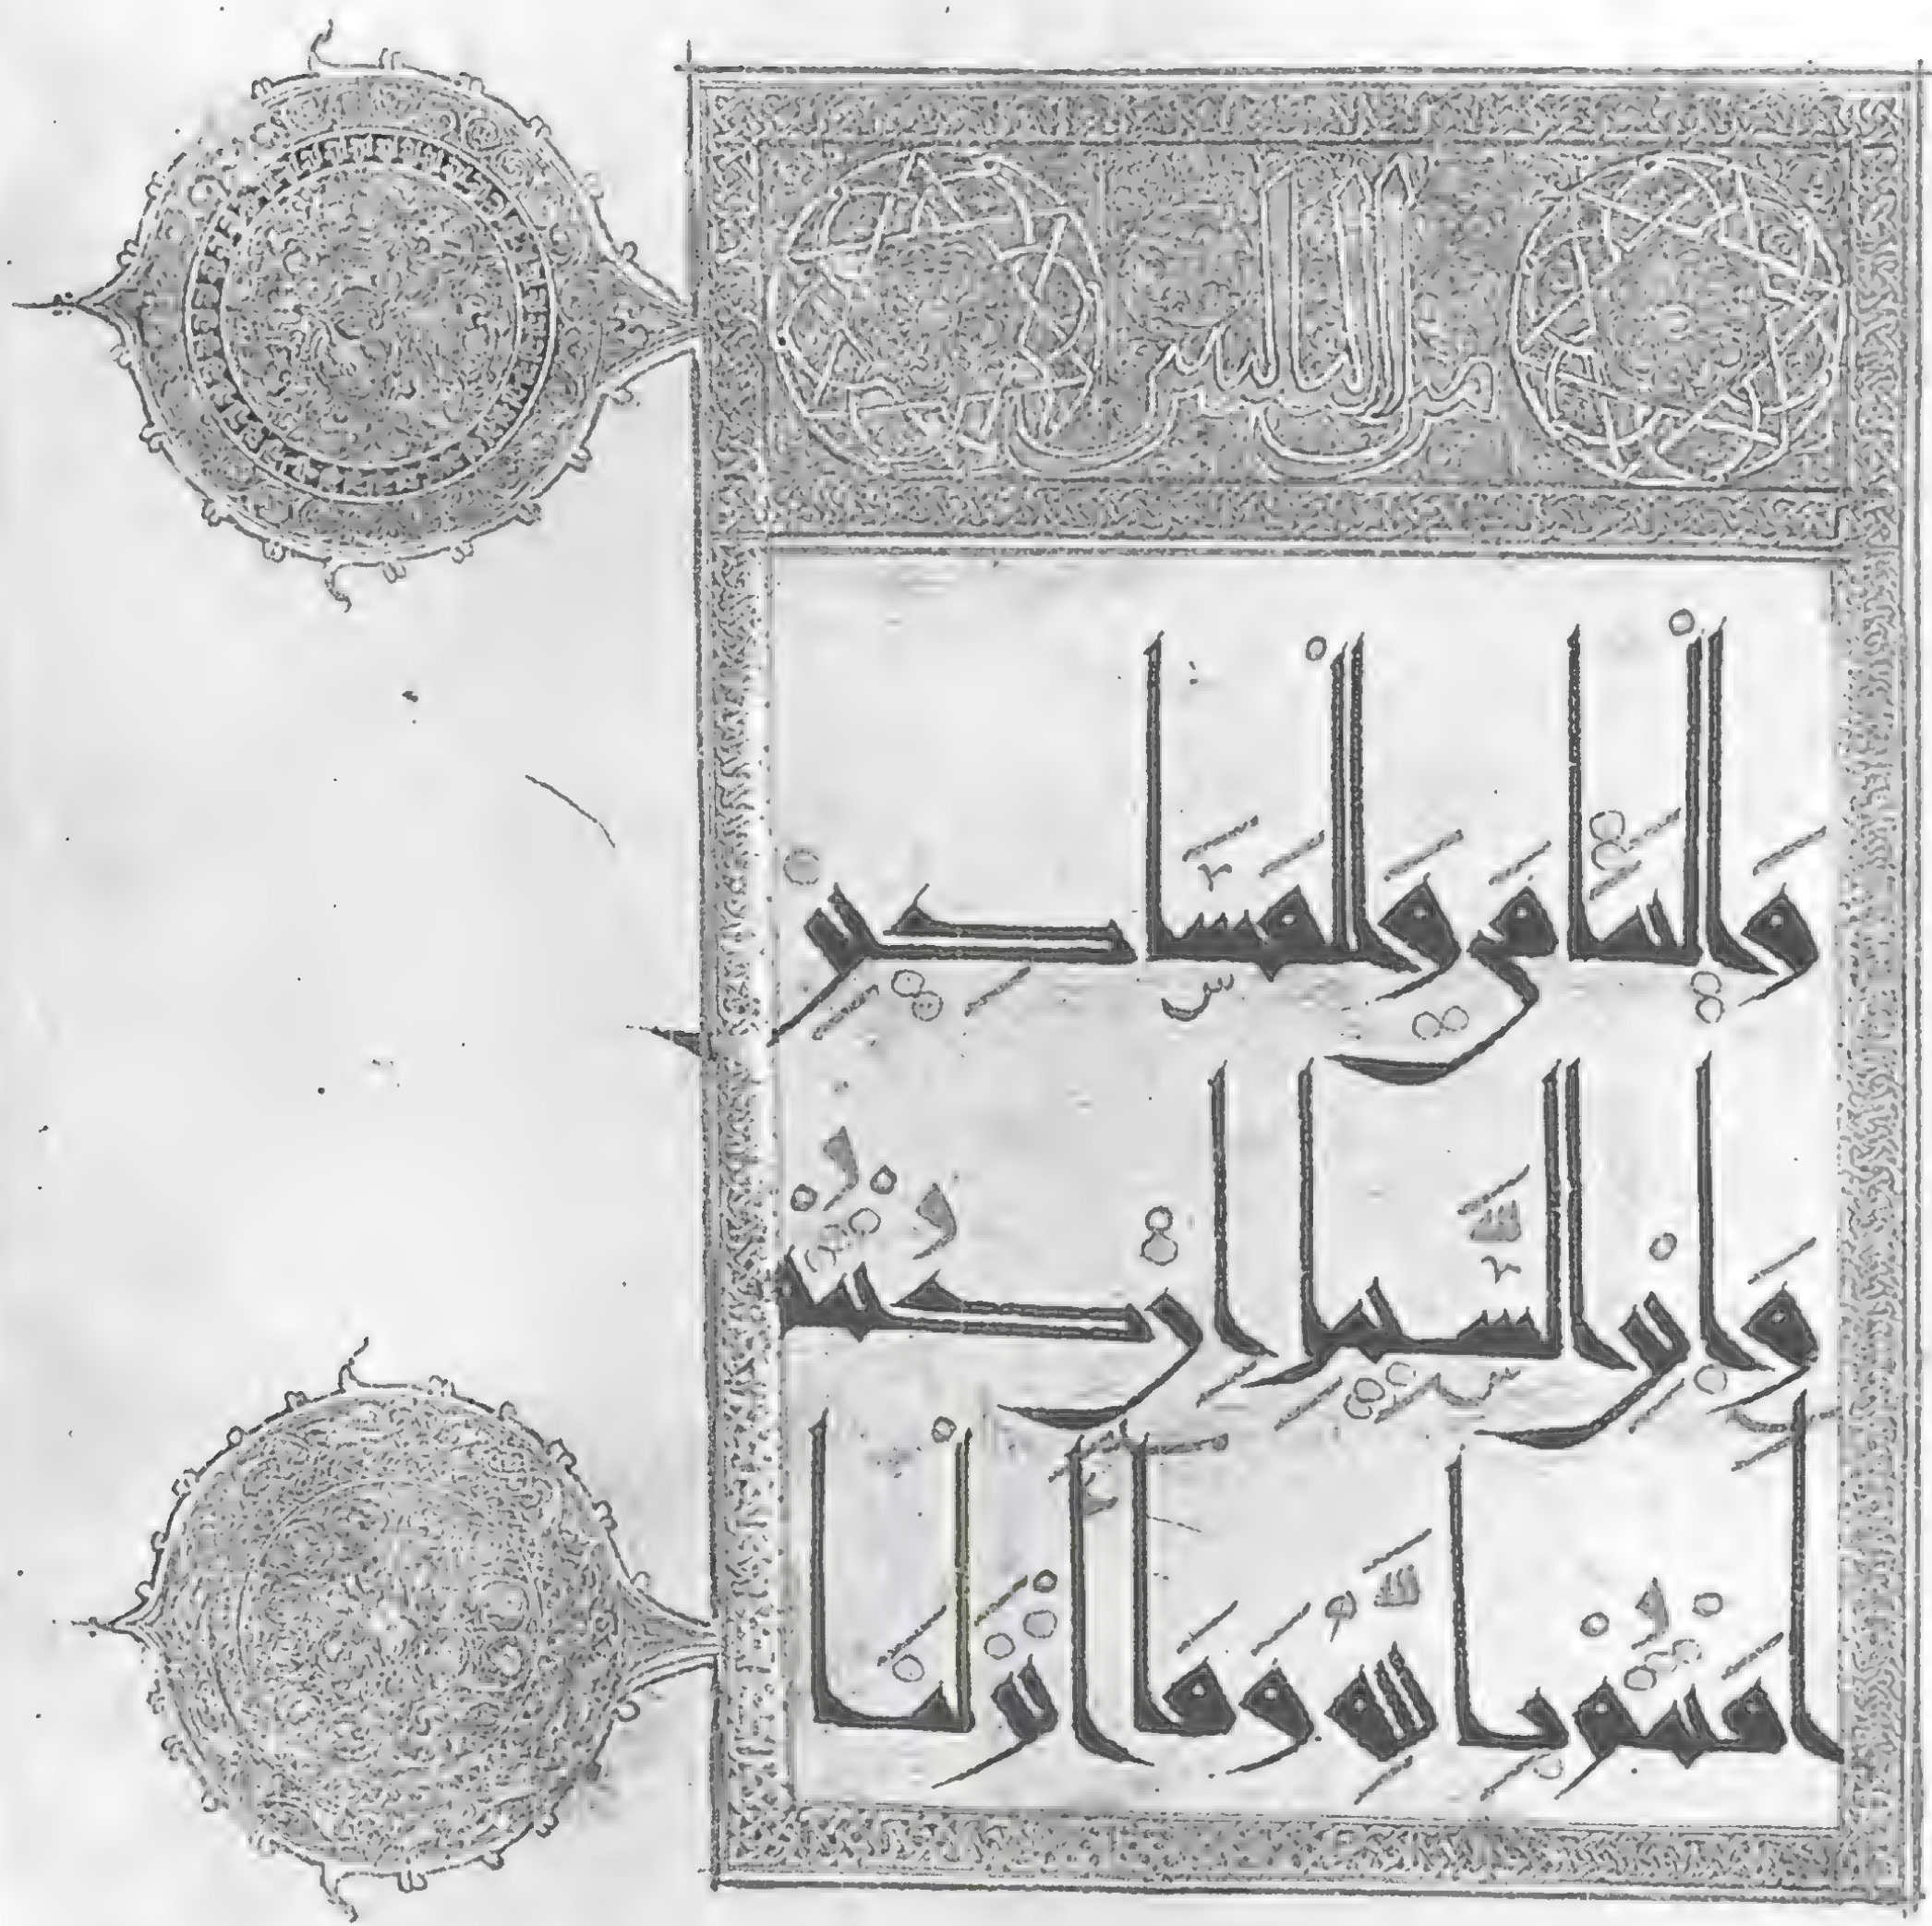 وَالْيَتَامَى وَالْمَسَاكِينِ
وَابْنِ السَّبِيلِ اِنْ كُنْتُمْ
اٰمَنْتُمْ بِاللَّهِ وَمَا اَنْزَلْنَا